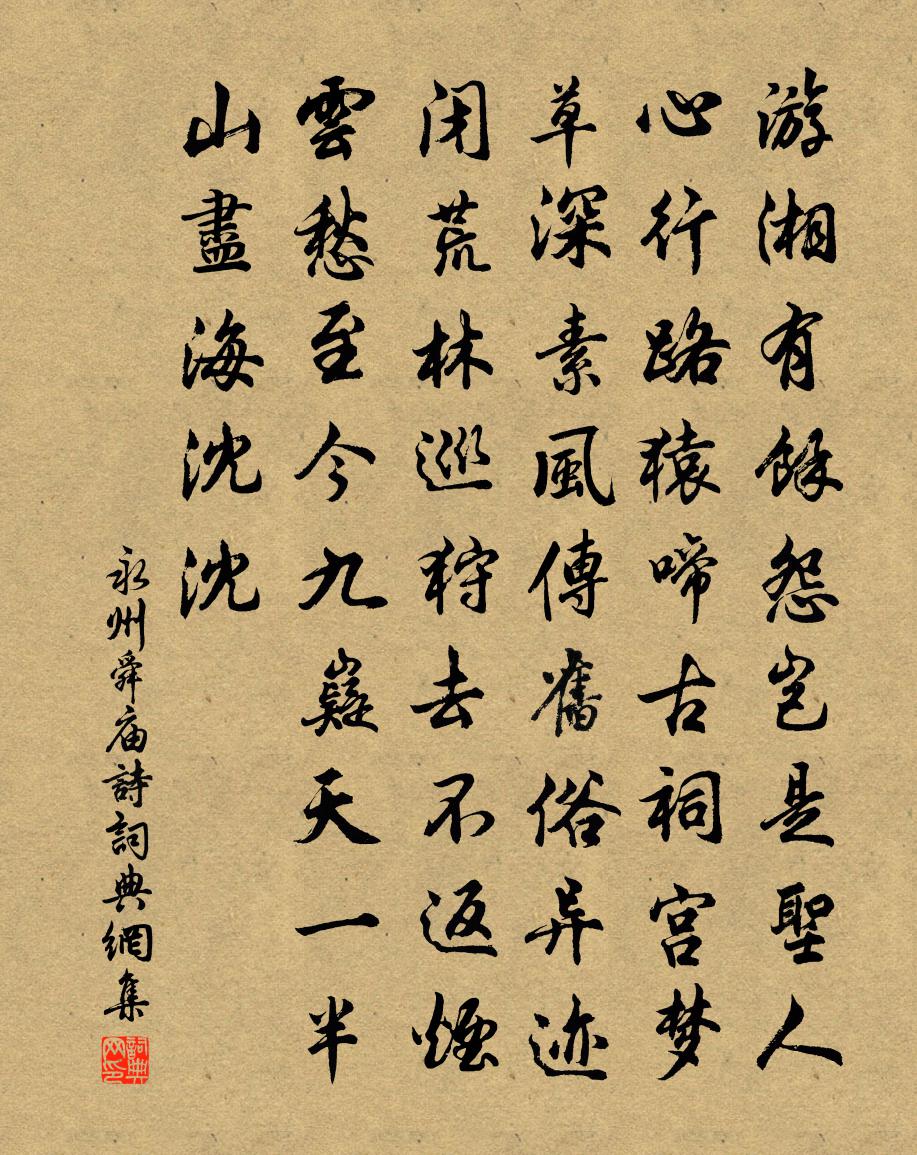 游湘有餘怨豈是聖人
心行路猿啼古祠宮梦
草深素風傳舊俗异迹
闭荒林巡狩去不返煙
雲愁至今九嶷天一半
山盡海沈沈
永州舜庙詩詞典網集
詞典网印